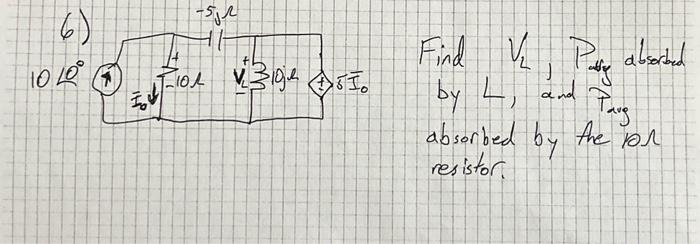 6)
-5jΩ
10∠0°
+
10Ω
-
I̅₀
+
V_L
-
10jΩ
+
-
5I̅₀
Find V_L, P_avg absorbed
by L, and P_avg
absorbed by the 10Ω
resistor.